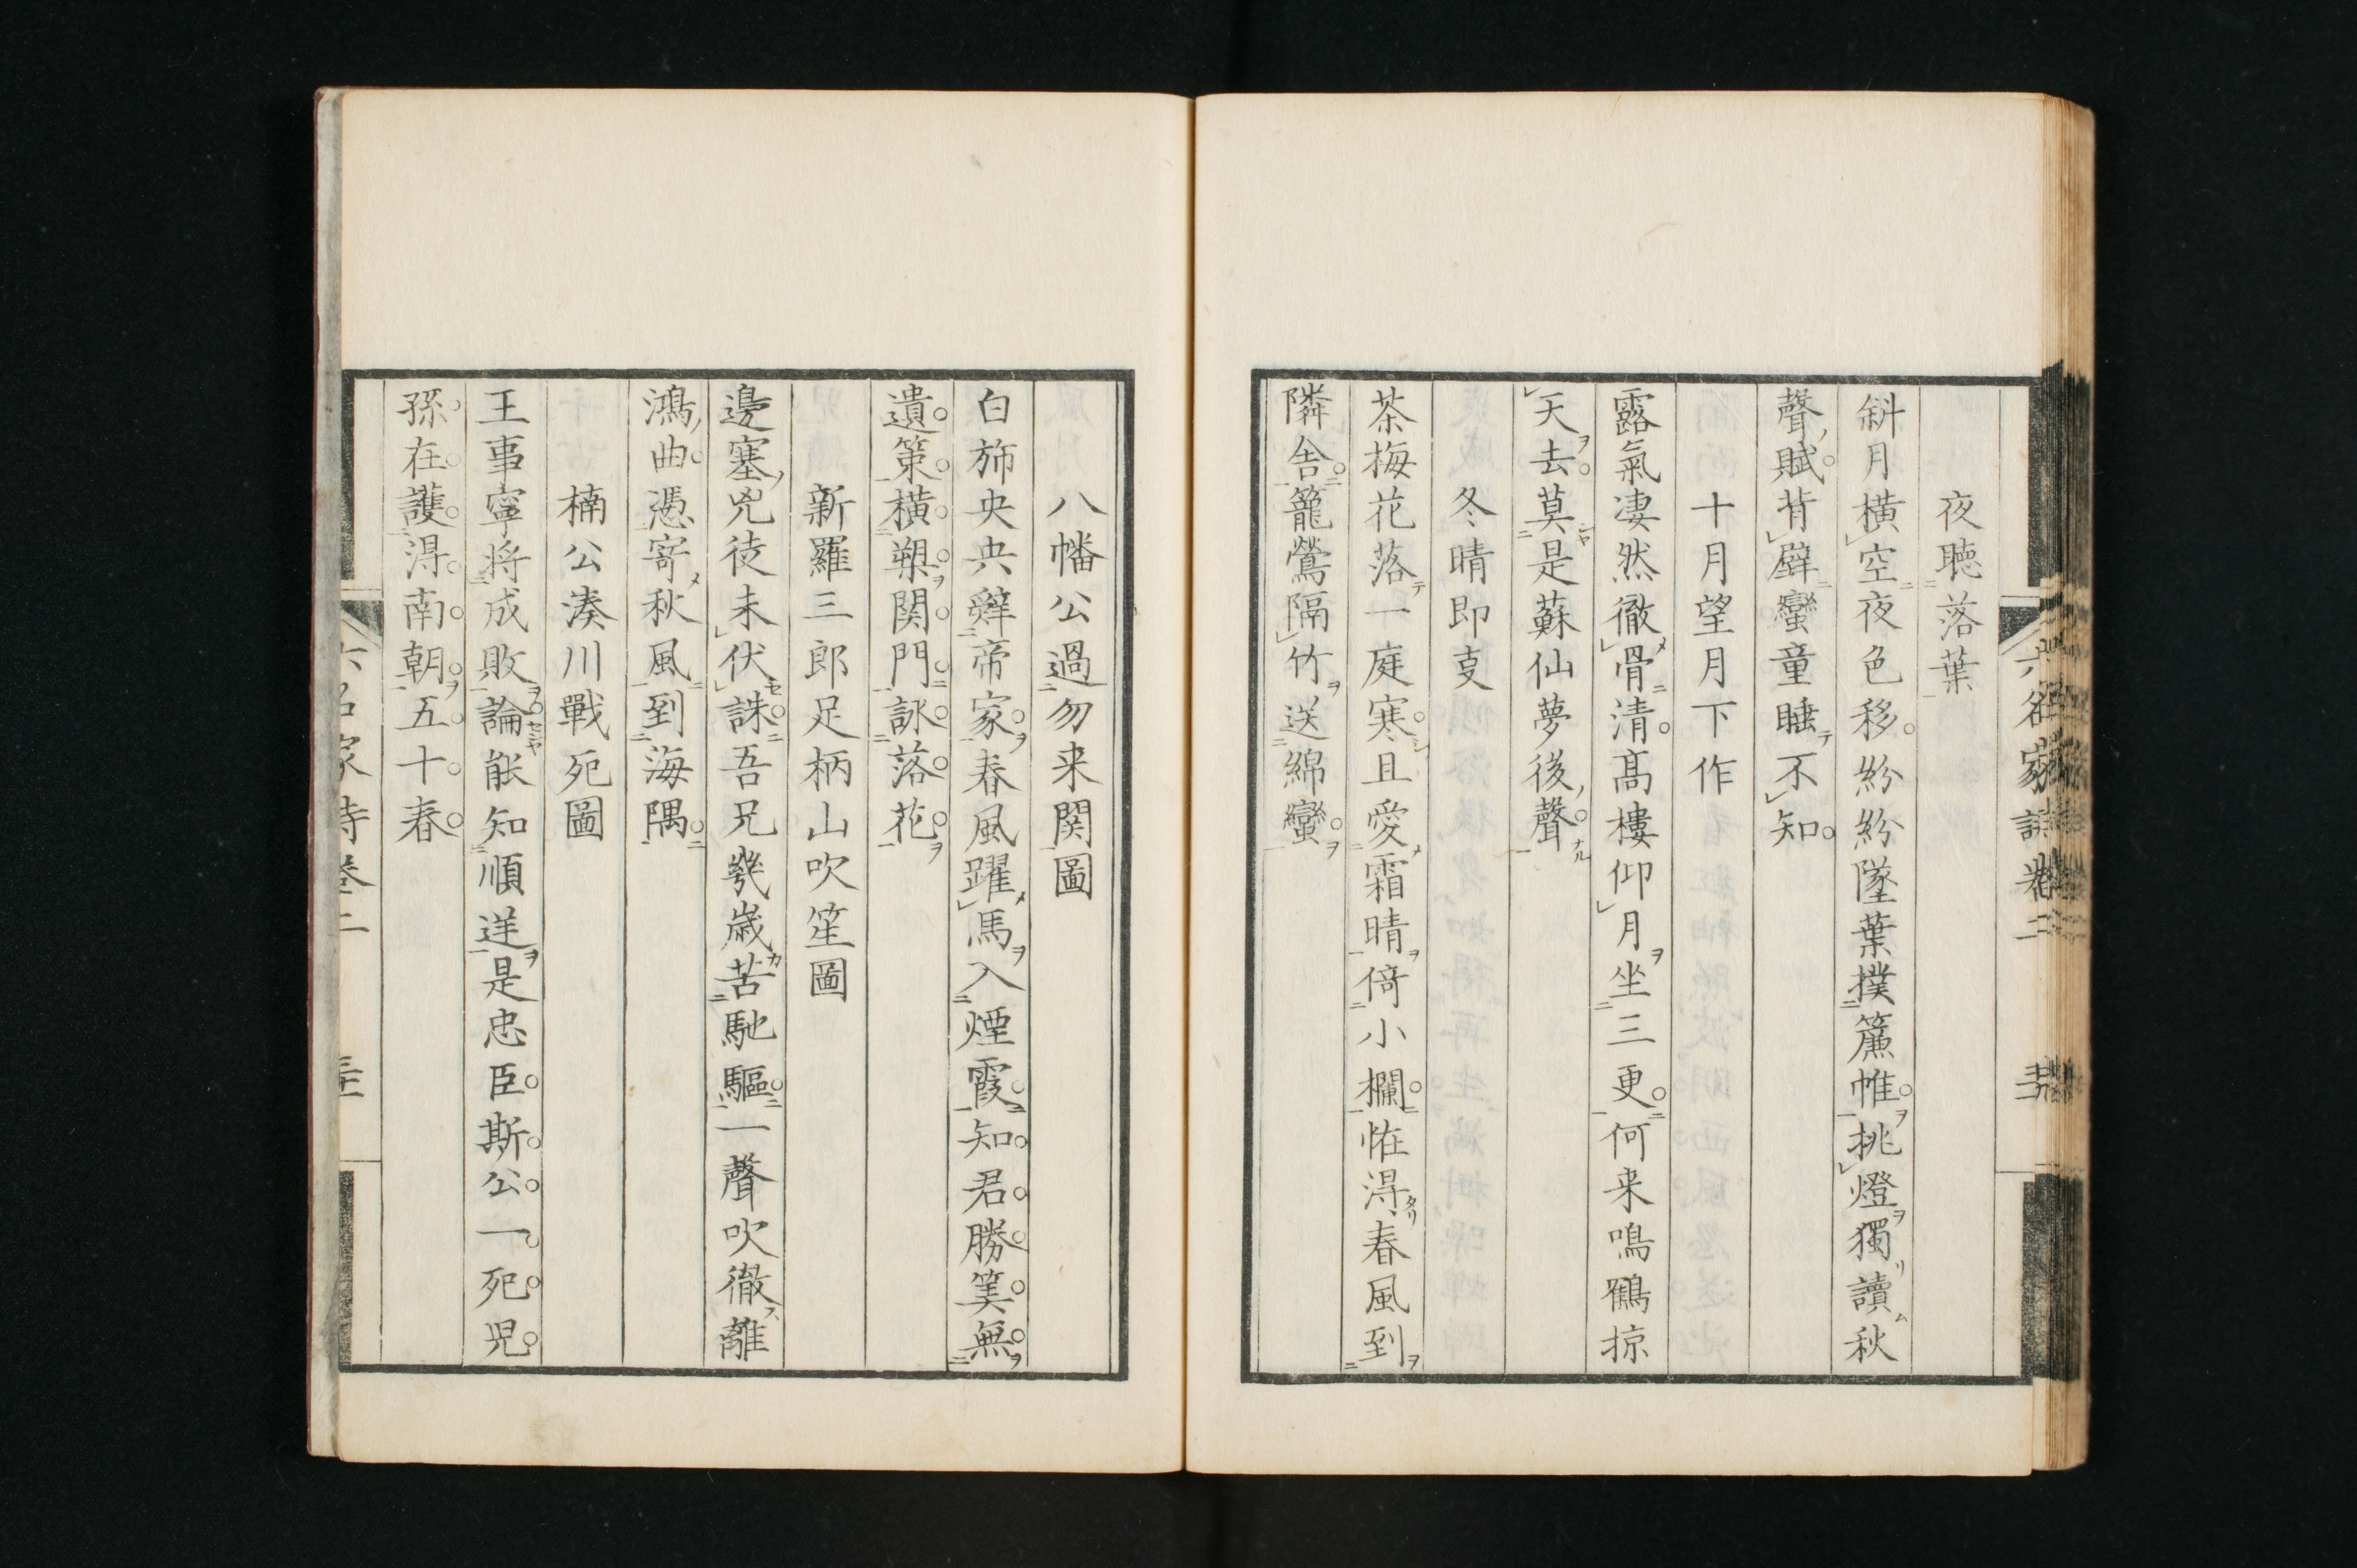 夜聽落葉
斜月橫空夜色移紛紛墜葉撲簾帷挑燈獨讀秋
聲賦背壁蠻童睡不知
十月望月下作
露氣凄然徹骨清髙樓仰月坐三更何来鳴鶴掠
天去莫是蘇仙夢後聲
冬晴即叓
茶梅花落一庭寒且愛霜晴倚小欄恠淂春風到
隣舎籠鶯隔竹送綿蠻
八幡公過勿来関圖
白斾央央辭帝家春風躍馬入煙霞知君勝筭無
遺策橫槊関門詠落花
新羅三郎足柄山吹笙圖
邊塞兇徒未伏誅吾兄幾歳苦馳驅一聲吹徹離
鴻曲憑寄秋風到海隅
楠公湊川戰死圖
王事寧將成敗論能知順逆是忠臣斯公一死児
孫在護淂南朝五十春
六名家詩卷二